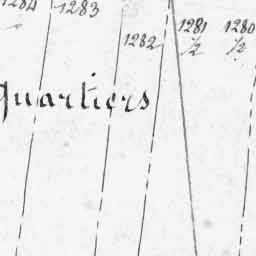 1284 1283
1282 1281 1280
½ ½
Quartiers